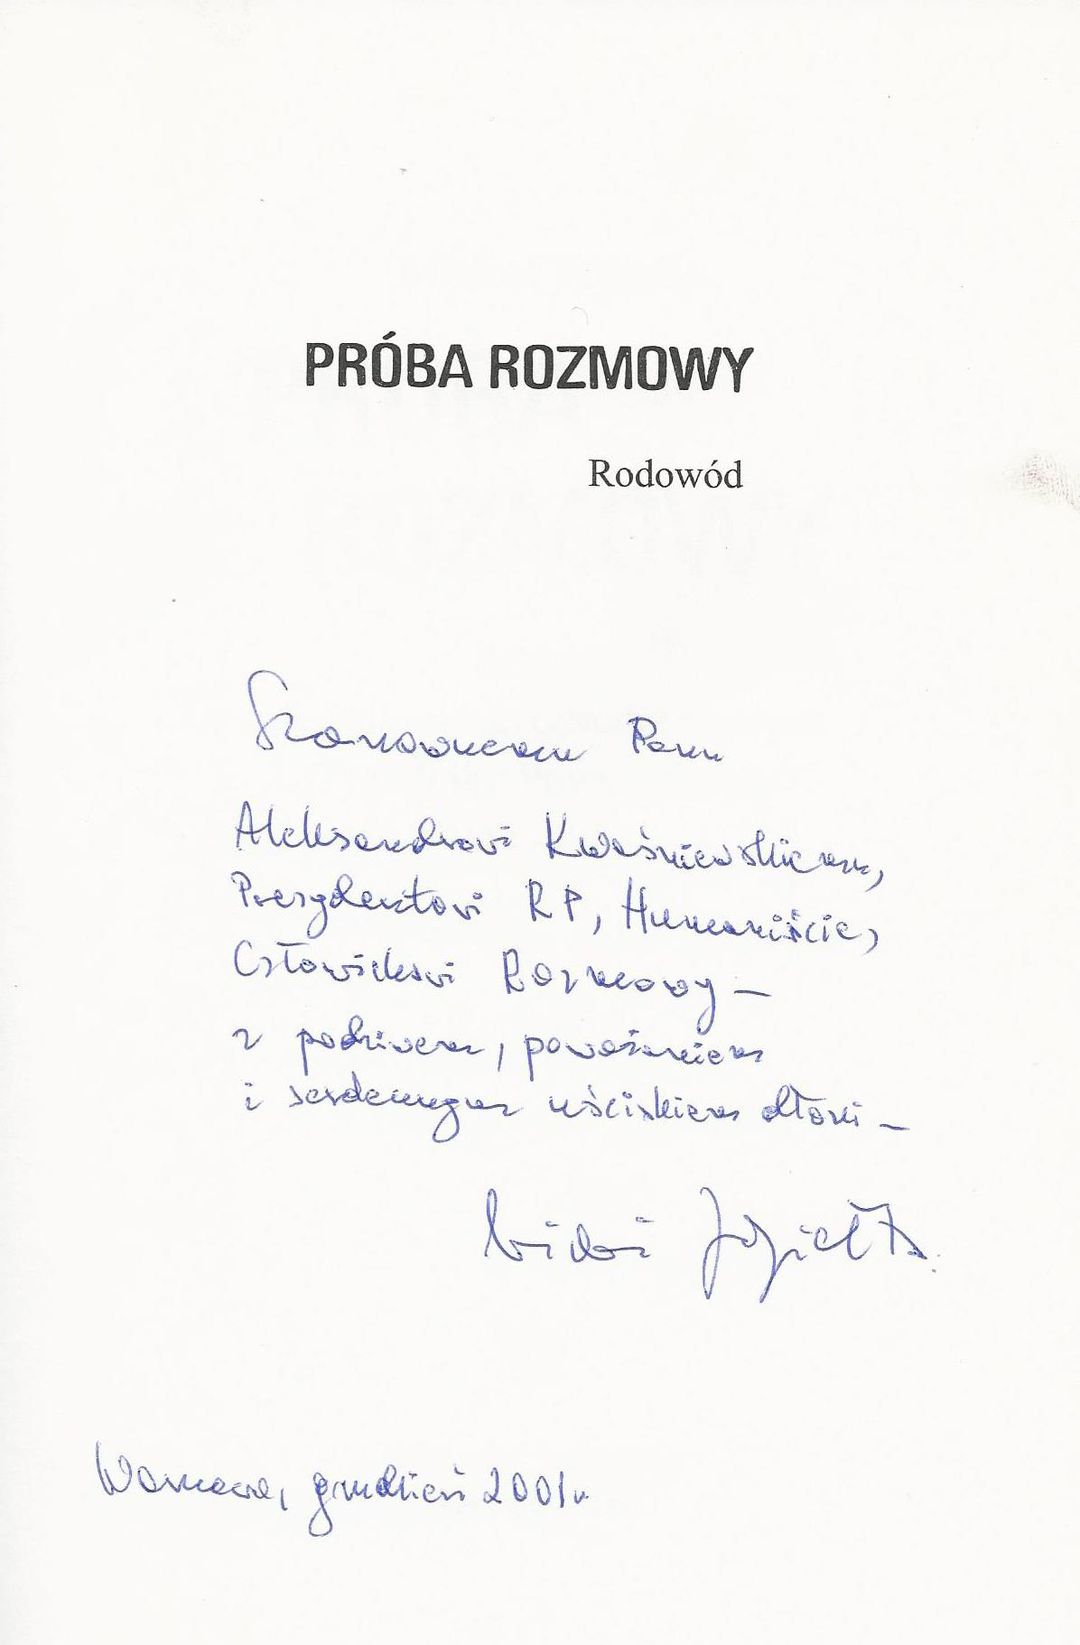 PRÓBA ROZMOWY
Rodowód
Szanownemu Panu
Aleksandrowi Kwaśniewskiemu,
Prezydentowi RP, Humaniście,
Człowiekowi Rozmowy –
z podziwem, poważaniem
i serdecznym uściskiem dłoni –
Warszawa, grudzień 2001 r.